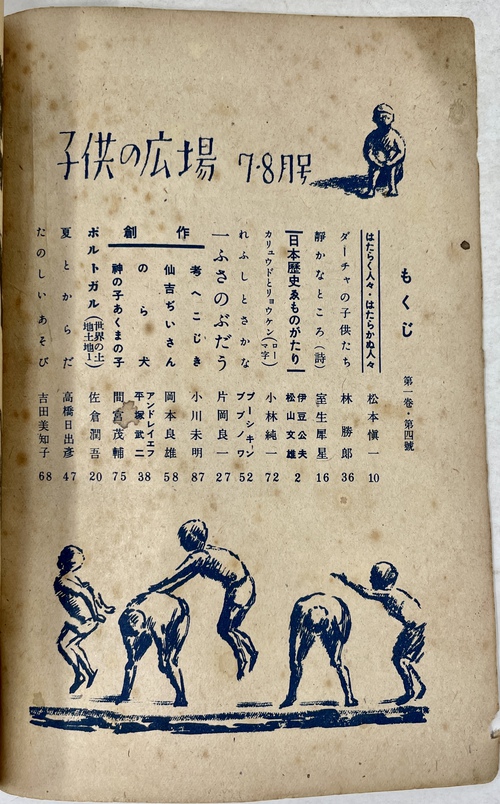 子供の広場 7・8月号
もくじ
第一巻・第四號
はたらく人々・はたらかぬ人々 松本愼一 10
ダーチャの子供たち 林勝郎 36
靜かなところ(詩) 室生犀星 16
日本歴史ゑものがたり 伊豆公夫 松山文雄 2
カリュウドとリョウケン(ローマ字) 小林純一 72
れふしとさかな プーシキン ププノワ 52
一ふさのぶだう 片岡良一 27
創作
考へこじき 小川未明 87
仙吉ぢいさん 岡本良雄 58
のら犬 アンドレイエフ 平塚武二 38
神の子あくまの子 間宮茂輔 75
ポルトガル(世界の土地土地1) 佐倉潤吾 20
夏とからだ 高橋日出彦 47
たのしいあそび 吉田美知子 68